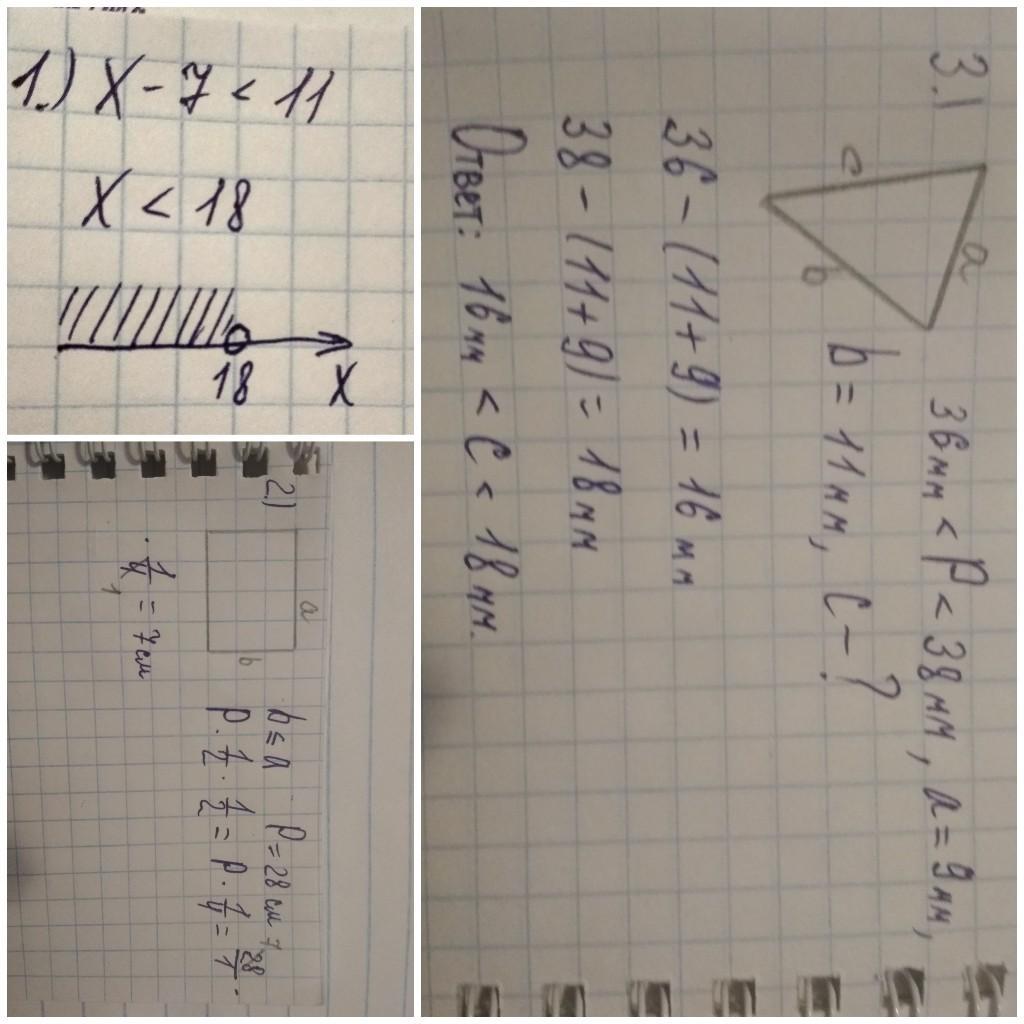 1.) X - 7 < 11
X < 18
18
X
2.)
a
b
b = a P = 28 см
P · 1/2 · 1/2 = P · 1/4 = 28/1 ·
7
· 1/4 = 7 см
1
3.1
a
b
c
36 мм < P < 38 мм, a = 9 мм,
b = 11 мм, C - ?
36 - (11 + 9) = 16 мм
38 - (11 + 9) = 18 мм
Ответ: 16 мм < C < 18 мм.